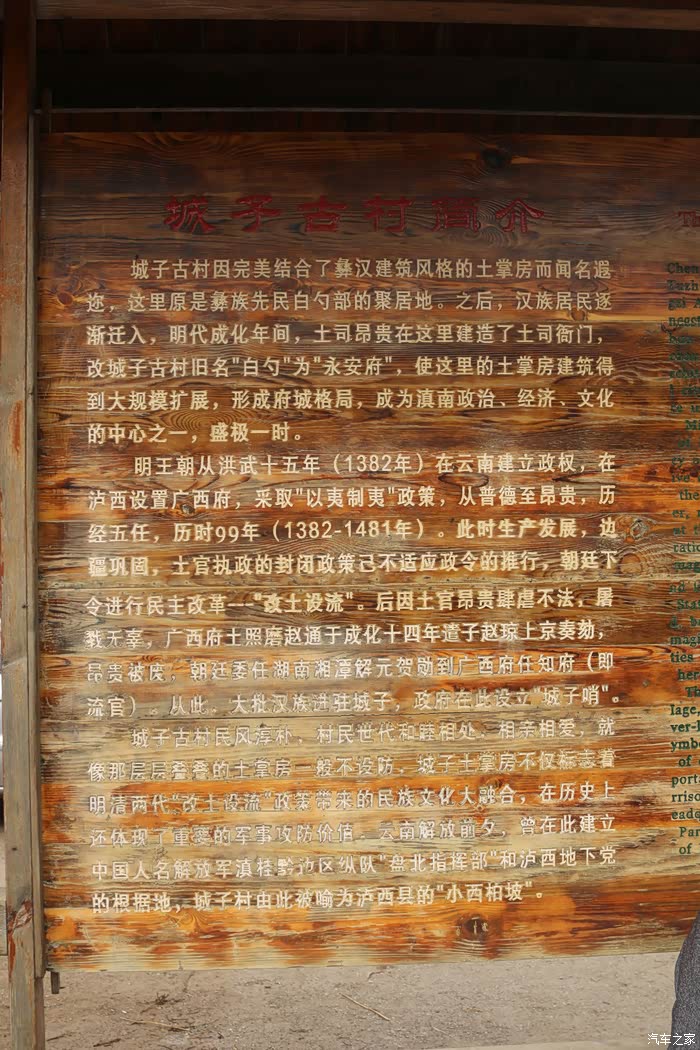 城子古村简介
城子古村因完美结合了彝汉建筑风格的土掌房而闻名遐
迩，这里原是彝族先民白勺部的聚居地。之后，汉族居民逐
渐迁入，明代成化年间，土司昂贵在这里建造了土司衙门，
改城子古村旧名"白勺"为"永安府"，使这里的土掌房建筑得
到大规模扩展，形成府城格局，成为滇南政治、经济、文化
的中心之一，盛极一时。
明王朝从洪武十五年（1382年）在云南建立政权，在
泸西设置广西府，采取"以夷制夷"政策，从普德至昂贵，历
经五任，历时99年（1382-1481年）。此时生产发展，边
疆巩固，土官执政的封闭政策己不适应政令的推行，朝廷下
令进行民主改革---"改土设流"。后因土官昂贵肆虐不法，屠
戮无辜，广西府土照磨赵通于成化十四年遣子赵琼上京奏劾，
昂贵被废，朝廷委任湖南湘潭解元贺勋到广西府任知府（即
流官）。从此，大批汉族进驻城子，政府在此设立"城子哨"。
城子古村民风淳朴，村民世代和睦相处，相亲相爱，就
像那层层叠叠的土掌房一般不设防，城子土掌房不仅标志着
明清两代"改土设流"政策带来的民族文化大融合，在历史上
还体现了重要的军事攻防价值。云南解放前夕，曾在此建立
中国人名解放军滇桂黔边区纵队"盘北指挥部"和泸西地下党
的根据地，城子村由此被喻为泸西县的"小西柏坡"。
Chen
Tuzh
negot
Mi
ive
the
er,
at
ratic
mag
nd
d, b
mag
ties
her
lage,
ver-l
ymb
of
porta
rriso
eade
Par
of
汽车之家